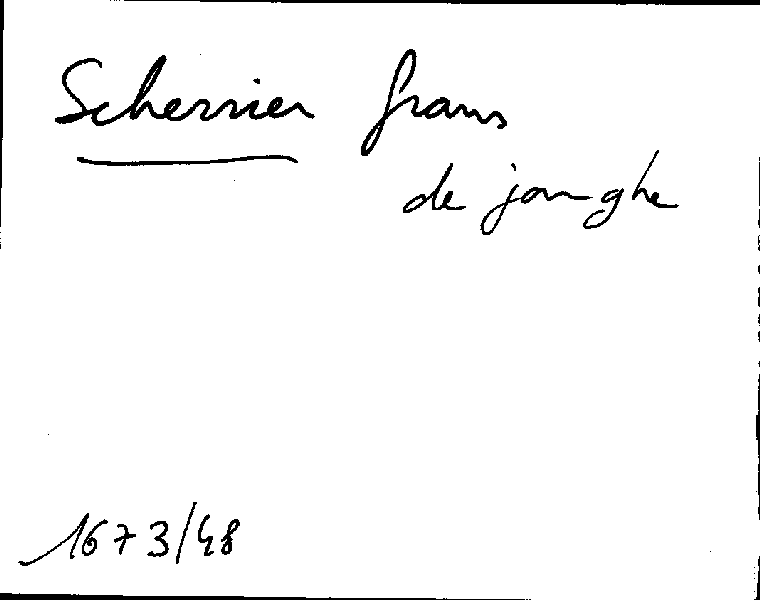 Scherrier frans
de jonghe
1673/48